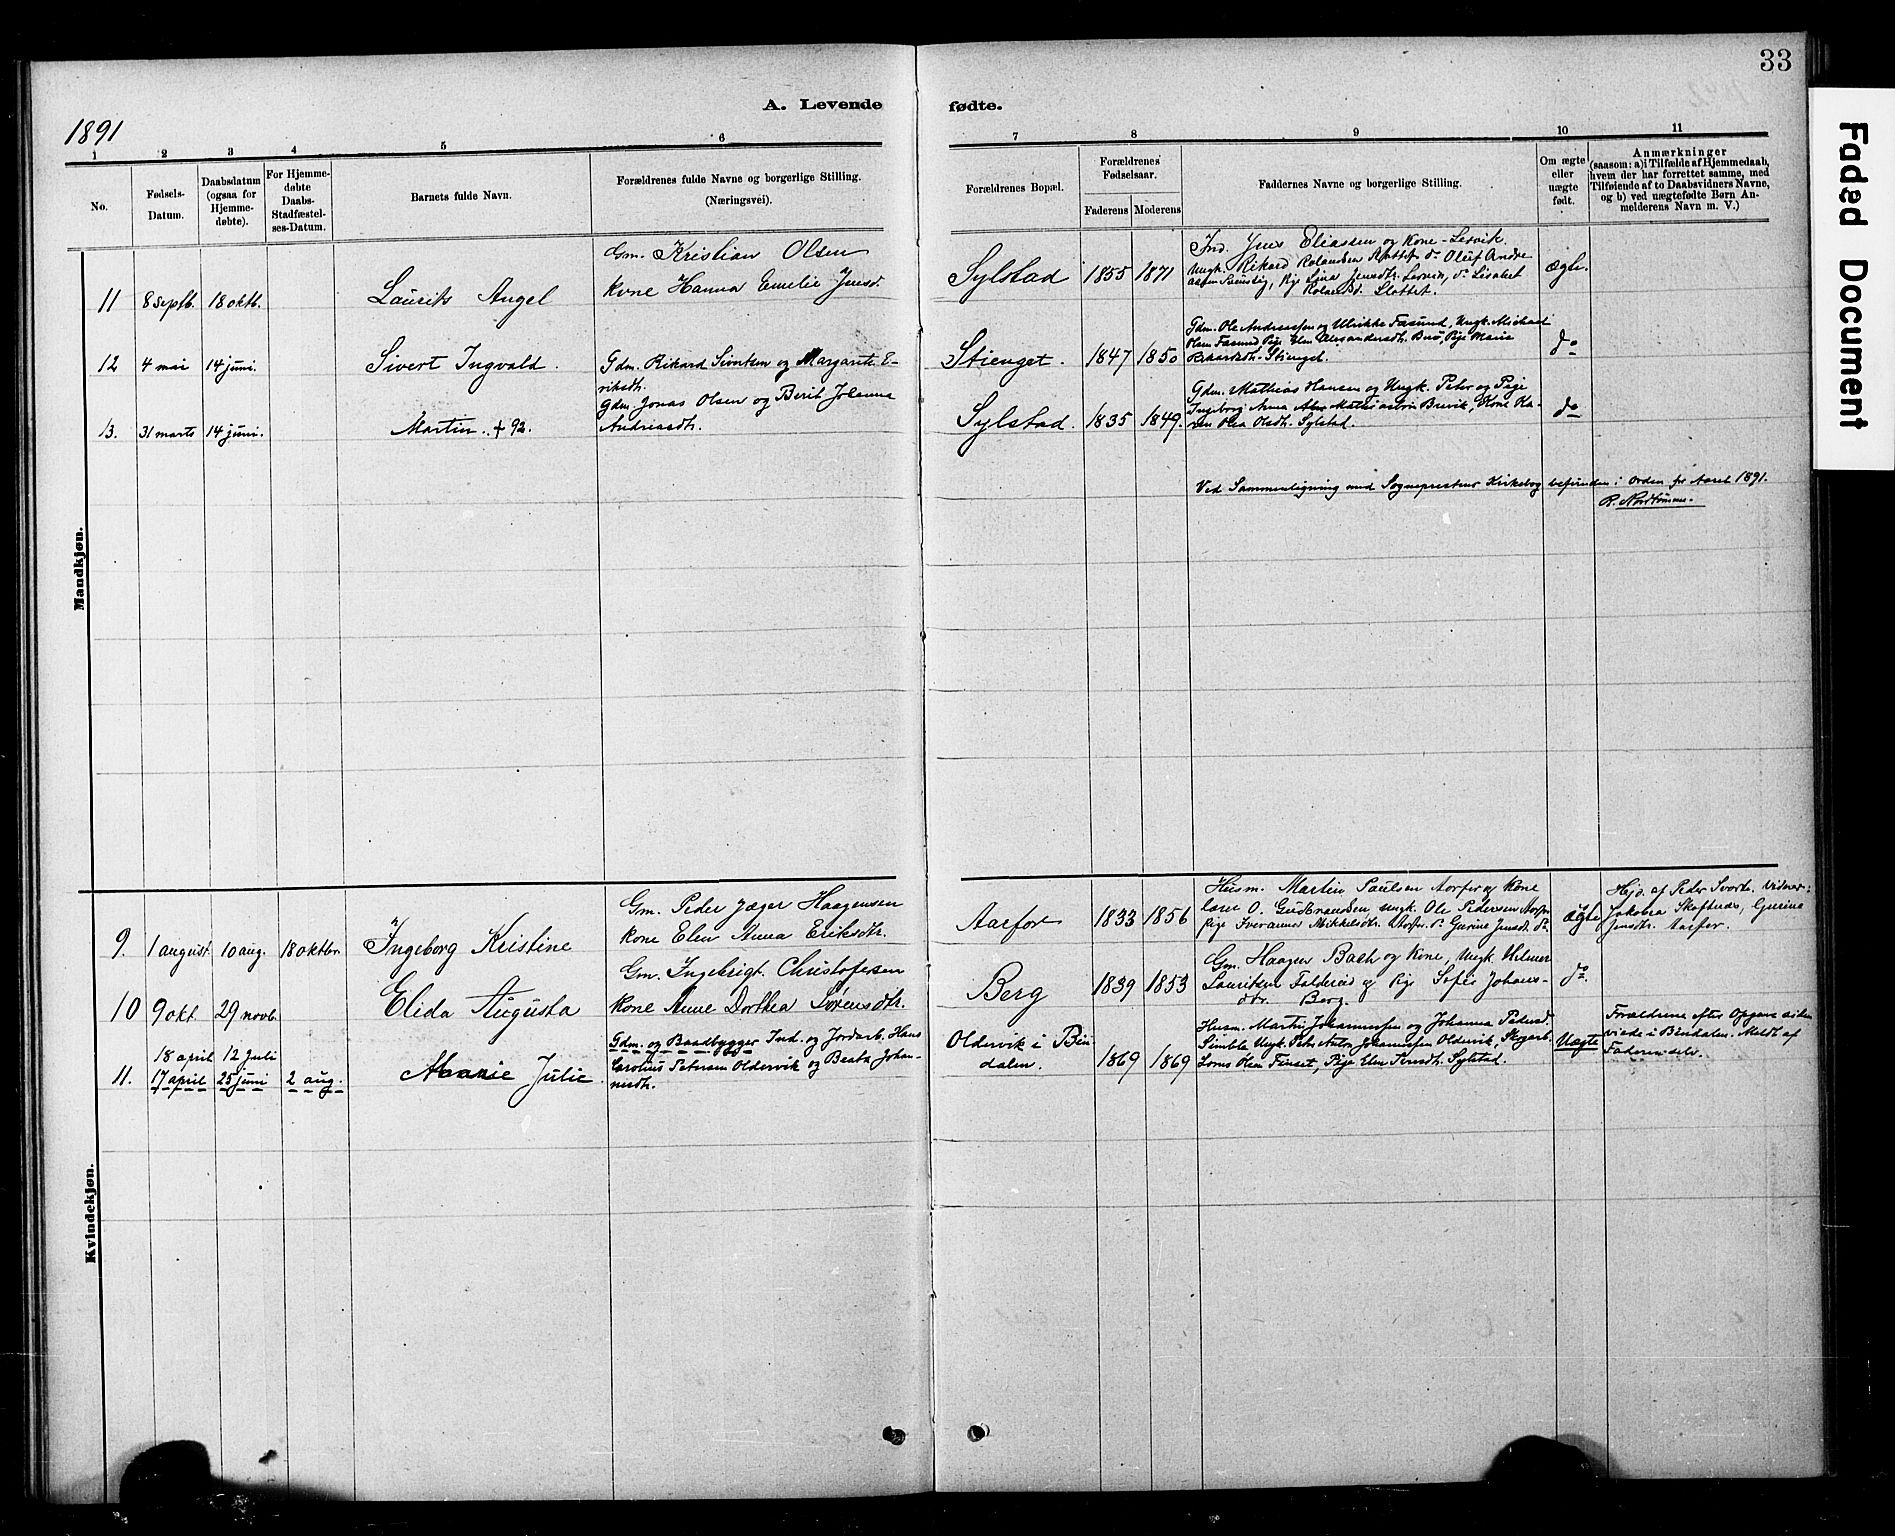 33
A. Levende fødte.
1891
1 2 3 4 5 6 7 8 9 10 11
No.
Fødsels-Datum.
Daabsdatum (ogsaa for Hjemme-døbte).
For Hjemme-døbte Daabs-Stadfæstel-ses-Datum.
Barnets fulde Navn.
Forældrenes fulde Navne og borgerlige Stilling.
(Næringsvei).
Forældrenes Bopæl.
Forældrenes Fødselsaar.
Faderens Moderens
Faddernes Navne og borgerlige Stilling.
Om ægte eller uægte født.
Anmærkninger
(saasom: a) i Tilfælde af Hjemmedaab,
hvem der har forrettet samme, med
Tilføiende af to Daabsvidners Navne,
og b) ved uægtefødte Børn An-
melderens Navn m. V.)
Mandkjøn.
11 8 septb. 18 oktb. Laurits Angel
Gm. Kristian Olsen
Kone Hanna Emelie Jensd.
Sylstad 1855 1871
Ind. Jens Eliassen og Kone - Lervik.
Ungk. Rikard Rolandsen Slottet do Oluf Andre
Pige Sina Jensdtr. Lervik, do Lisabet
Rolandsd. Slottet.
ægte.
12 4 mai 14 juni. Sivert Ingvald.
Gdm. Rikard Sivertsen og Margarete E-
riksdtr.
Stienget. 1847 1850
Gdm. Ole Andreassen og Ulrikke Fasund, Ungk. Michael
Olsen Fasund Pige Elen Alexandersdtr. Pige Maria
Rikardsdtr. Stienget.
do
13. 31 marts 14 juni. Martin. + 92.
Gdm. Jonas Olsen og Berit Johanna
Andreasdtr.
Sylstad. 1835 1849.
Gdm. Mathias Hansen og Ungk. Peter og Pige
Ingeborg Anna Brevik, Kone Ka-
ren Olea Olsdtr. Sylstad.
do
Ved Sammenligning med Sogneprestens Kirkebog befunden i Orden for Aaret 1891.
Kvindekjøn.
9. 1 august. 10 aug. 18 oktbr Ingeborg Kristine
Gm. Peder Jæger Haagensen
Kone Elen Anna Eriksdtr.
Aarfor 1833 1856
Husm. Martin Paulsen Aarfor og Kone
lærer O. Gudbrandsen, ungk. Ole Pedersen Aarfor
pige Iveranna Mikkelsdtr. Aarfor. do Gurine Jensdt. do
ægte
Hjd. af Peder Svorte. Vidner:
Jakobea Skeftnes, Gurine
Jensdtr. Aarfor.
10 9 okt. 29 novb. Elida Augusta
Gm. Ingebrigt. Christofersen
Kone Anne Dorthea Sørensdtr.
Berg 1839 1853
Gm. Haagen Bach og Kone, Ungk. Hilmer
Lauritsen Foldereid og Pige Sofie Johans-
dtr. Berg.
do.
18 april 12 juli
11. 17 april 25 juni 2 aug. Marie Julie.
Gdm. og Baadbygger Ind. og Jordarb. Hans
Carolius Petersen Oldervik og Beata Johan-
nesdtr.
Oldervik i Bin-
dalen. 1869 1869
Husm. Martin Johannessen og Johanna Pedersd.
Simble Ungk. Peter Anton Johannessen Oldervik, Skogarb.
Lorns Olsen Finset, Pige Elen Jensdtr. Sylstad.
Uægte
Forældrene efter Opgave siden
viede i Bindalen. Meldt af
Faderen selv.
Faded Document